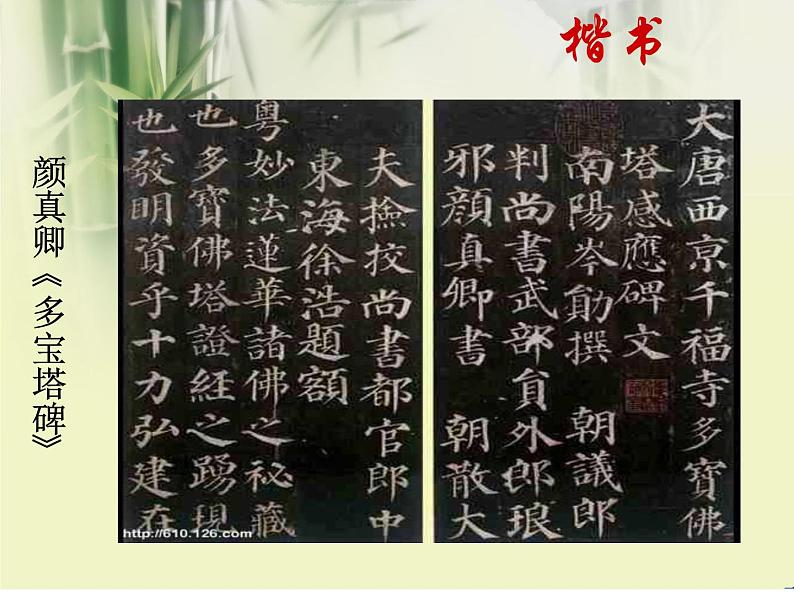 楷书
颜真卿《多宝塔碑》
大唐西京千福寺多寶佛
塔感應碑文
南陽岑勛撰 朝議郎
判尚書武部員外郎琅
邪顏真卿書 朝散大
夫撿挍尚書都官郎中
東海徐浩題額
粵妙法蓮華諸佛之祕藏
也多寶佛塔證經之踴現
也發明資乎十力弘建在
http://610.126.com/